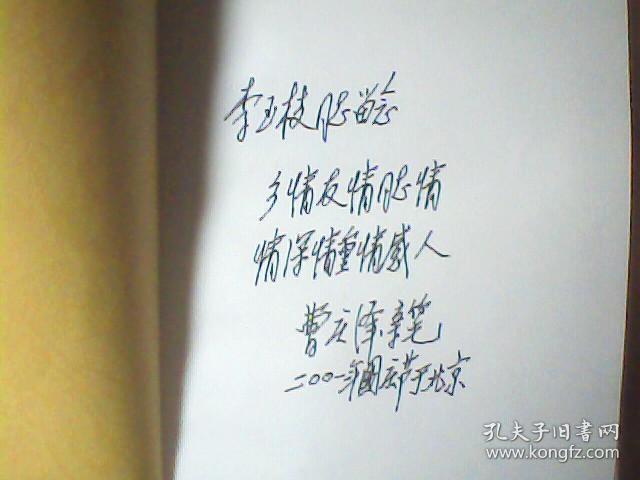 李玉枝同志留念
乡情友情同志情
情深情重情感人
曹庆泽亲笔
二〇〇一年國庆节于北京
孔夫子旧書网
www.kongfz.com